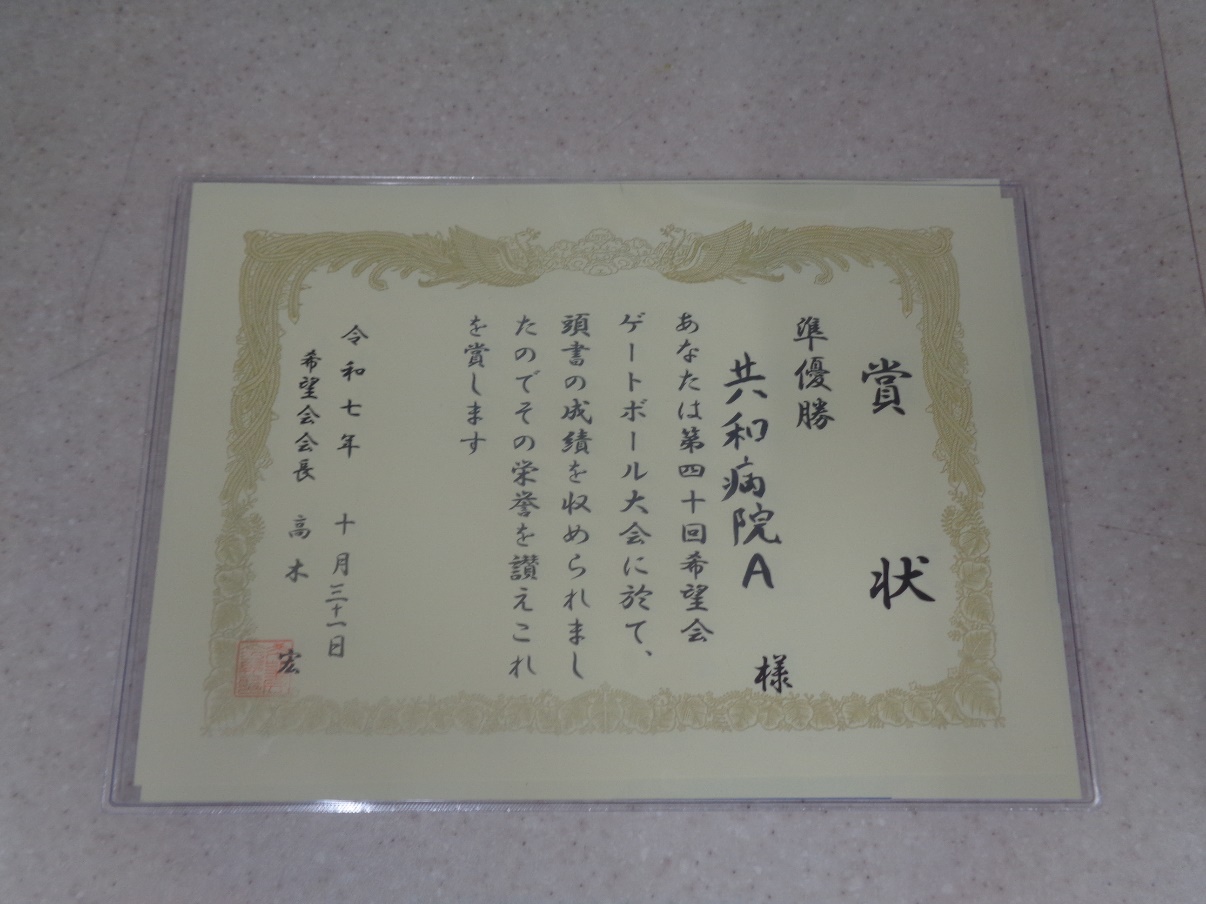 賞状
準優勝
共和病院A 様
あなたは第四十回希望会
ゲートボール大会に於て、
頭書の成績を収められまし
たのでその栄誉を讃えこれ
を賞します
令和七年 十月三十一日
希望会会長 高木 宏